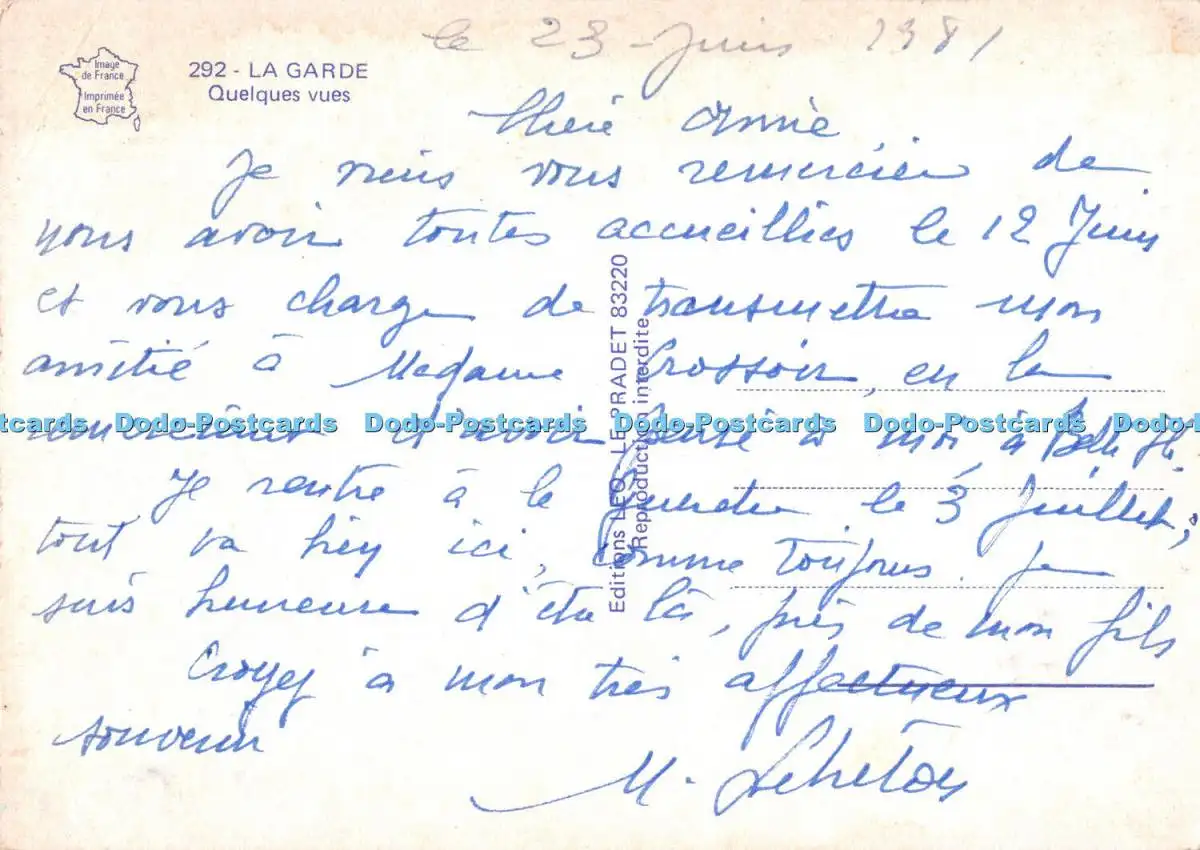 le 23 - Juin 1981
Image
de France
Imprimée
en France
292 - LA GARDE
Quelques vues
Chère Annie
Je viens vous remercier de
nous avoir toutes accueillies le 12 Juin
et vous charger de transmettre mon
amitié à Madame en la
remerciant d'avoir pensé à moi à
Je rentre à la le 3 Juillet,
tout va bien ici, comme toujours. Je
suis heureuse d'être là, près de mon fils
Croyez à mon très affectueux
souvenir
M.
Editions LEO - LE PRADET 83220
Reproduction interdite
Dodo-Postcards Dodo-Postcards Dodo-Postcards Dodo-Postcards Dodo-Postcards Dodo-Postcards